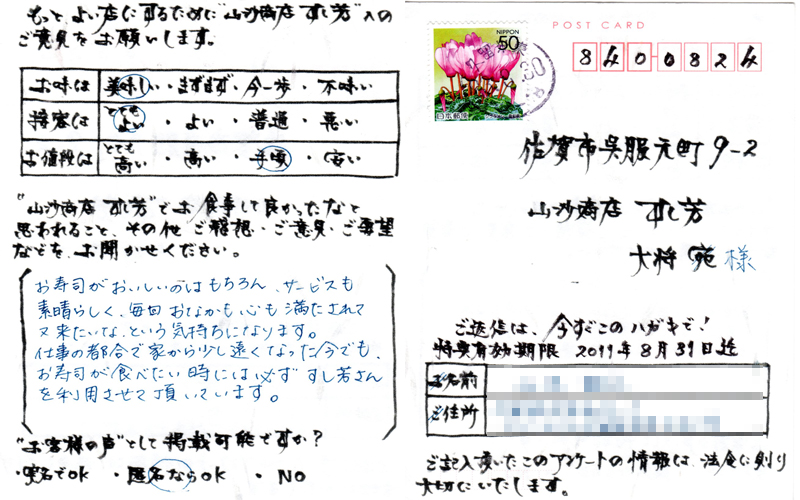 もっと、よい店にするために"山沙商店 すし芳"への
ご意見をお願いします。
お味は 美味しい・まずまず・今一歩・不味い
接客は とてもよい・よい・普通・悪い
お値段は とても高い・高い・手頃・安い
"山沙商店 すし芳"でお食事して良かったなと
思われること、その他ご感想・ご意見・ご要望
などをお聞かせください。
お寿司がおいしいのはもちろん、サービスも
素晴らしく、毎回おなかも心も満たされて
又来たいな、という気持ちになります。
仕事の都合で家から少し遠くなった今でも、
お寿司が食べたい時には必ずすし芳さん
を利用させて頂いています。
"お客様の声"として掲載可能ですか?
・実名でOK ・匿名ならOK ・NO
POST CARD
NIPPON
50
日本郵便
840-0824
佐賀市呉服元町9-2
山沙商店 すし芳
大将 宛 様
ご返信は、今すぐこのハガキで!
特典有効期限 2011年8月31日迄
お名前
ご住所
ご記入頂いたこのアンケートの情報は、法令に則り
大切にいたします。